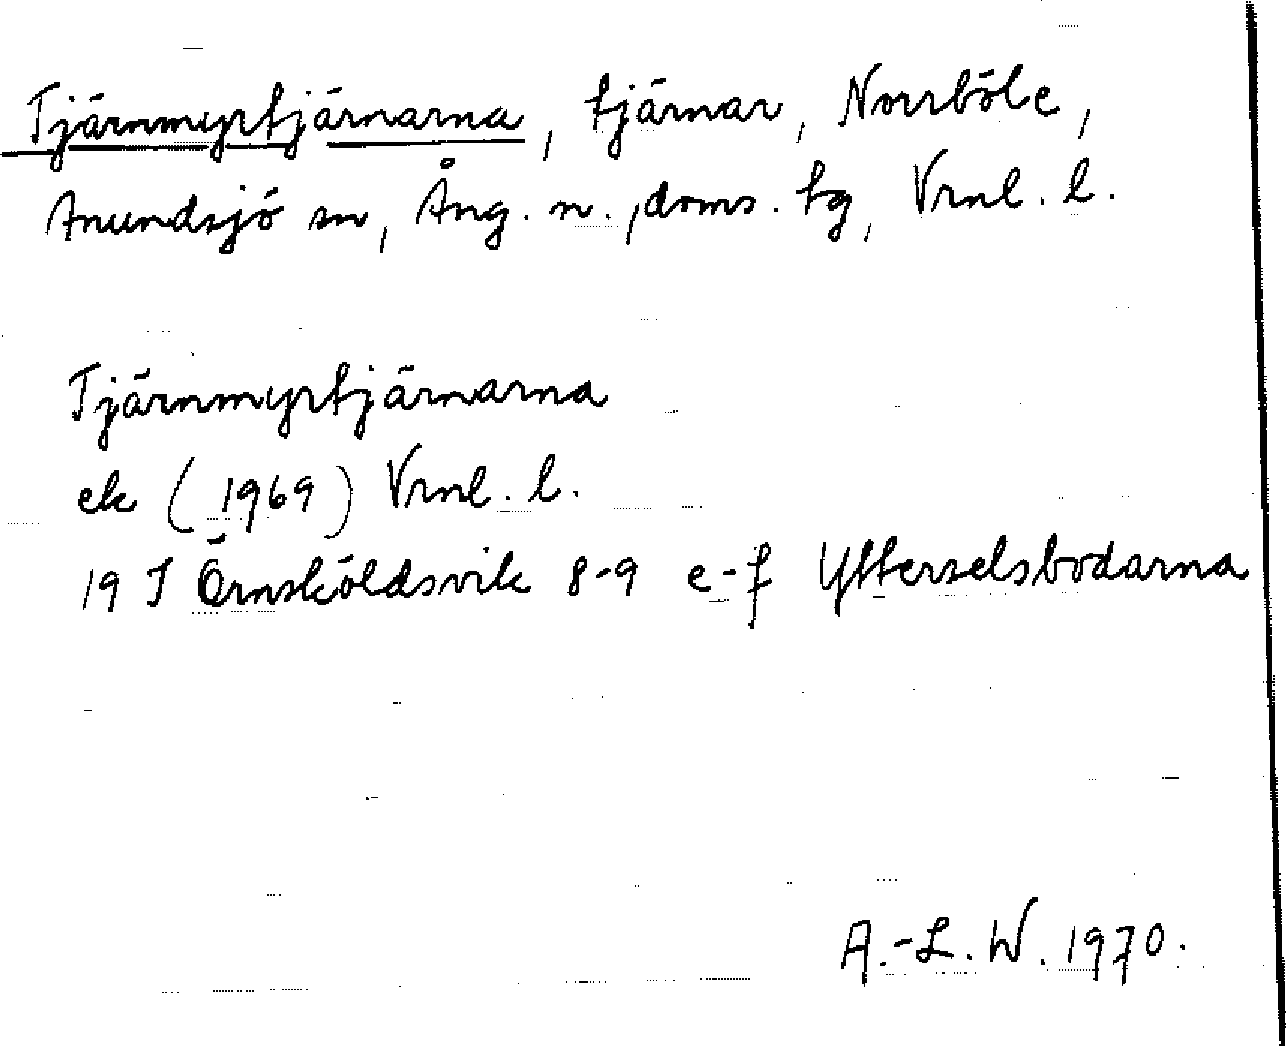 Tjärnmyrtjärnarna, tjärnar, Norrböle,
Anundsjö sn, Ång. n., doms. tg, Vrnl. l.
Tjärnmyrtjärnarna
ek (1969) Vrnl. l.
19 J Örnsköldsvik 8-9 e-f Ytterselsbodarna
A.-L. W. 1970.